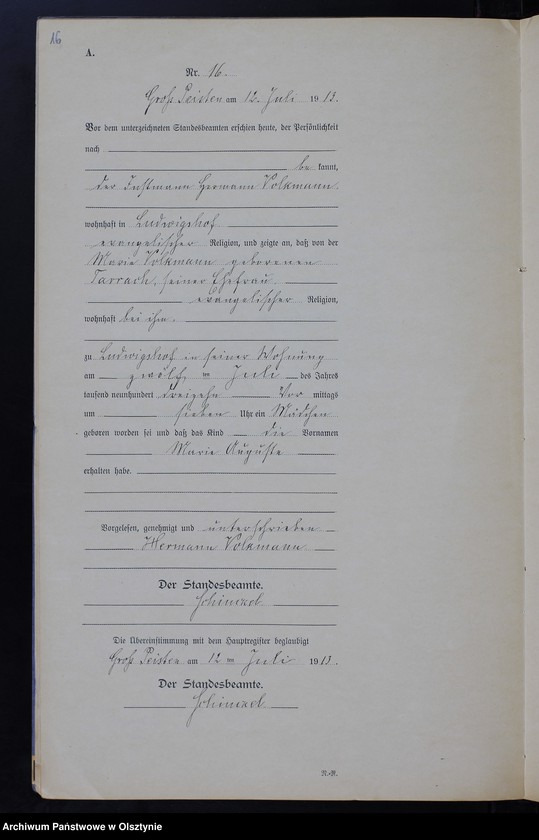 16
A.
Nr. 16.
Groß Peisten am 12. Juli 1913.
Vor dem unterzeichneten Standesbeamten erschien heute, der Persönlichkeit
nach
be kannt,
der Instmann Hermann Volkmann.
wohnhaft in Ludwigshof
evangelischer Religion, und zeigte an, daß von der
Marie Volkmann geborenen
Tarrach, seiner Ehefrau
evangelischer Religion,
wohnhaft bei ihm.
zu Ludwigshof in seiner Wohnung
am zwölften Juli des Jahres
tausend neunhundert dreizehn Vor mittags
um sieben Uhr ein Mädchen
geboren worden sei und daß das Kind die Vornamen
Marie Auguste
erhalten habe.
Vorgelesen, genehmigt und unterschrieben
Hermann Volkmann
Der Standesbeamte.
Die Übereinstimmung mit dem Hauptregister beglaubigt
Groß Peisten am 12 ten Juli 1913.
Der Standesbeamte.
N.-R.
Archiwum Państwowe w Olsztynie